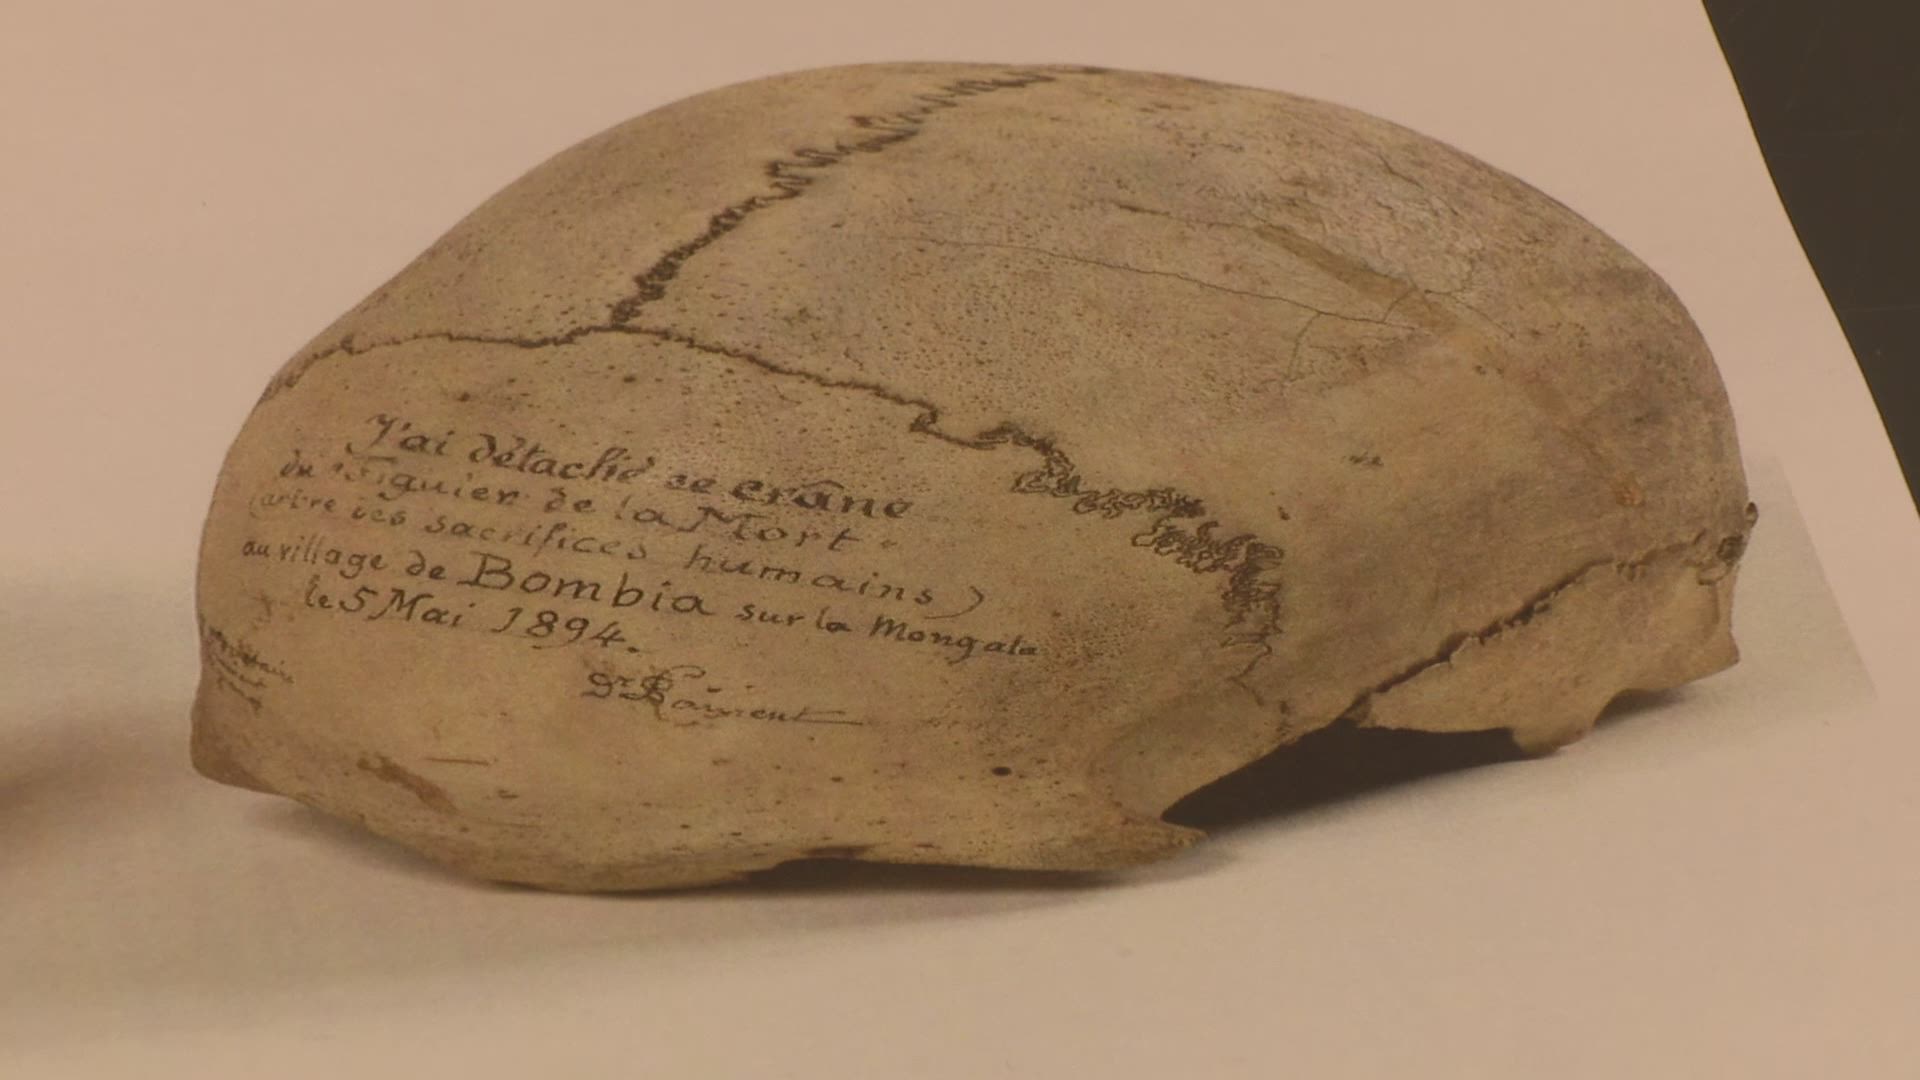 J'ai détaché ce crâne
du Figuier de la Mort
(arbre des sacrifices humains)
au village de Bombia sur la Mongala
le 5 Mai 1894.
Dr